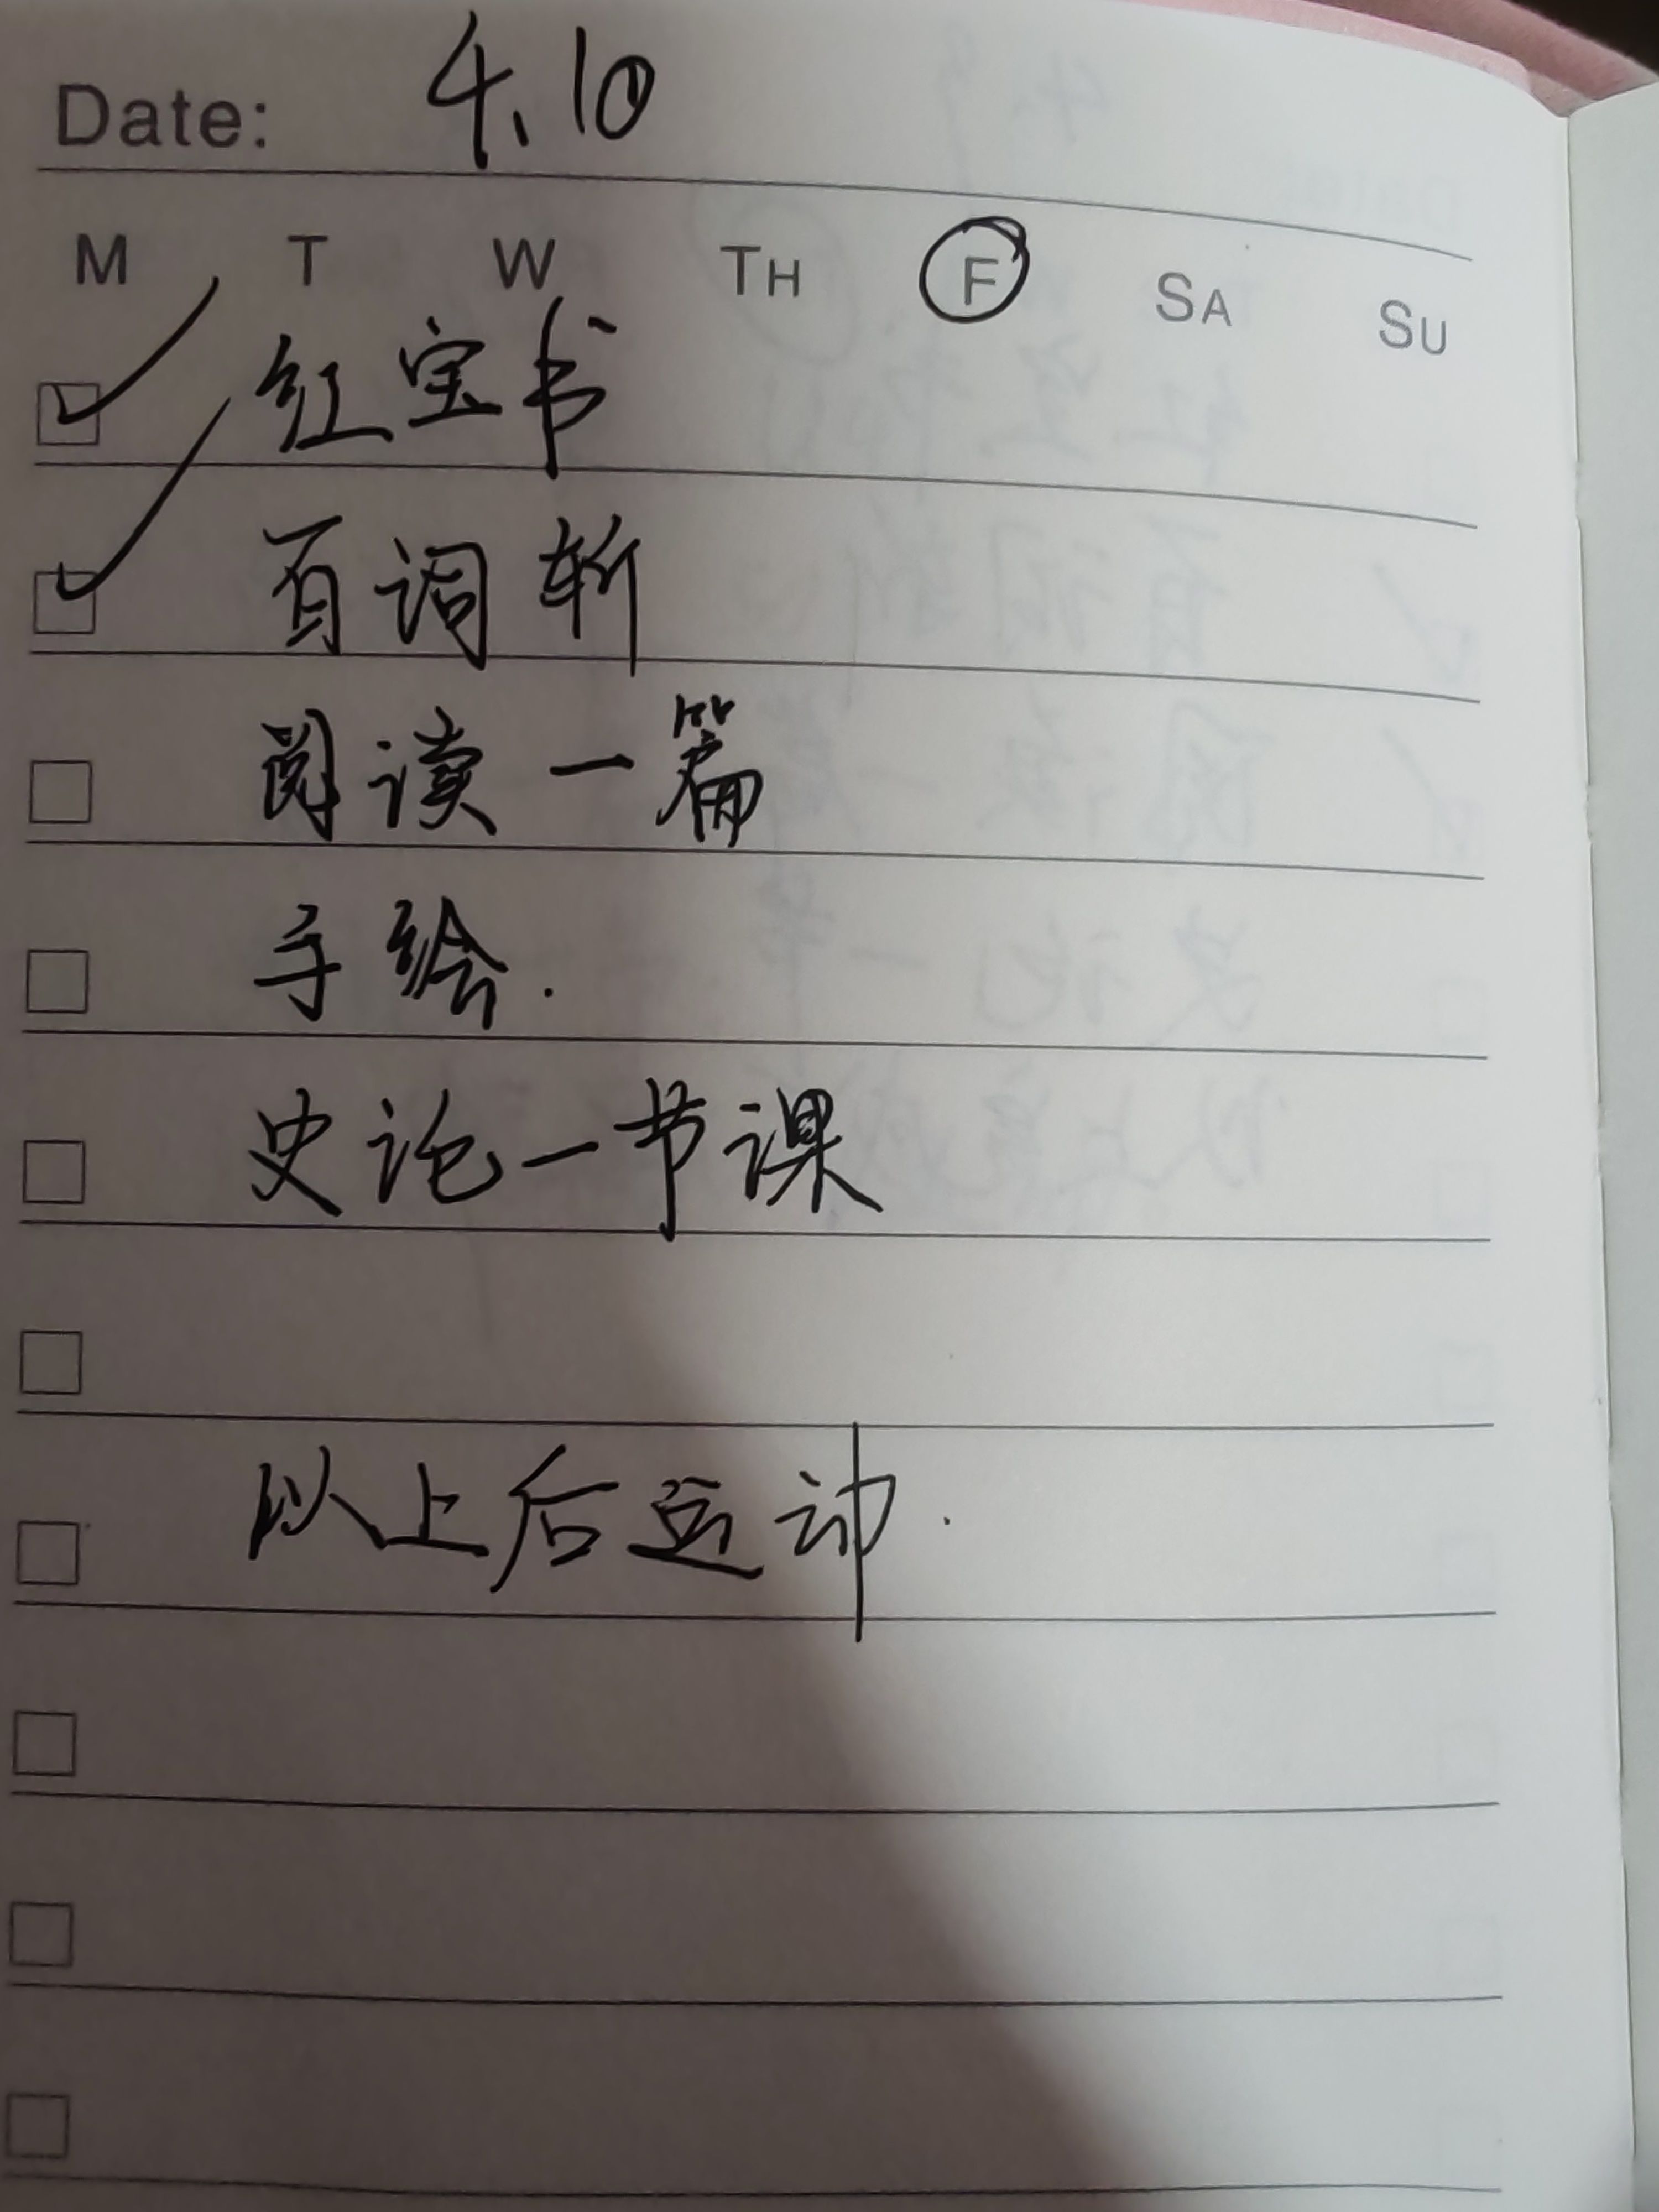 Date: 4.10
M T W TH F SA SU
红宝书
百词斩
阅读一篇
手绘.
史论一节课
以上后运动.